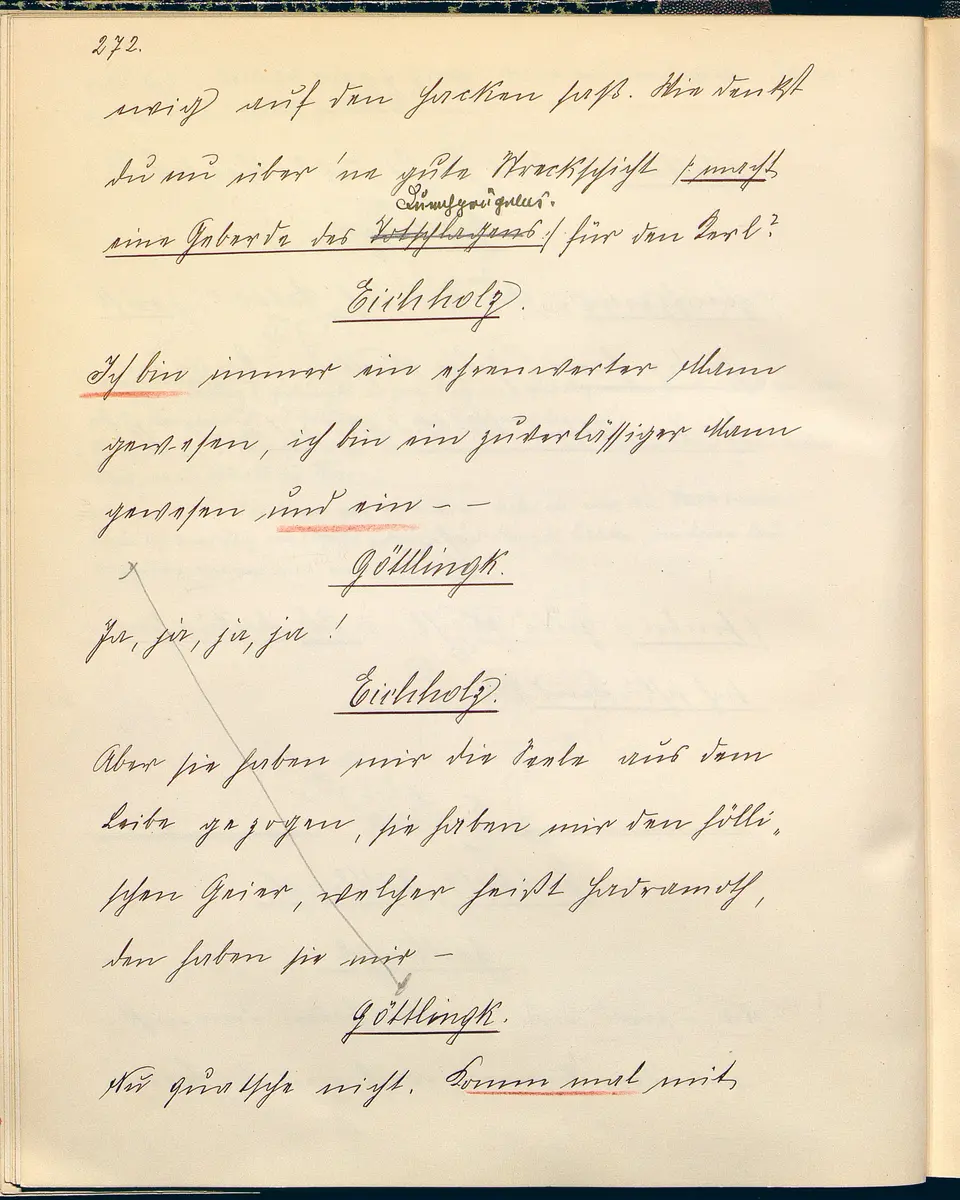 272.
ewig auf den Hacken saß. Wie denkst
du nu über 'ne gute Wrackschicht /: macht
Durchprügelns.
eine Geberde des Totschlagens :/ für den Kerl?
Eichholz.
Ich bin immer ein ehrenwerter Mann
gewesen, ich bin ein zuverlässiger Mann
gewesen und ein – –
Göttlingk.
Ja, ja, ja, ja!
Eichholz.
Aber sie haben mir die Seele aus dem
Leibe gezogen, sie haben mir den hölli„
schen Geier, welcher heißt Hadramoth,
den haben sie mir –
Göttlingk.
Nu quatsche nicht. Komm mal mit